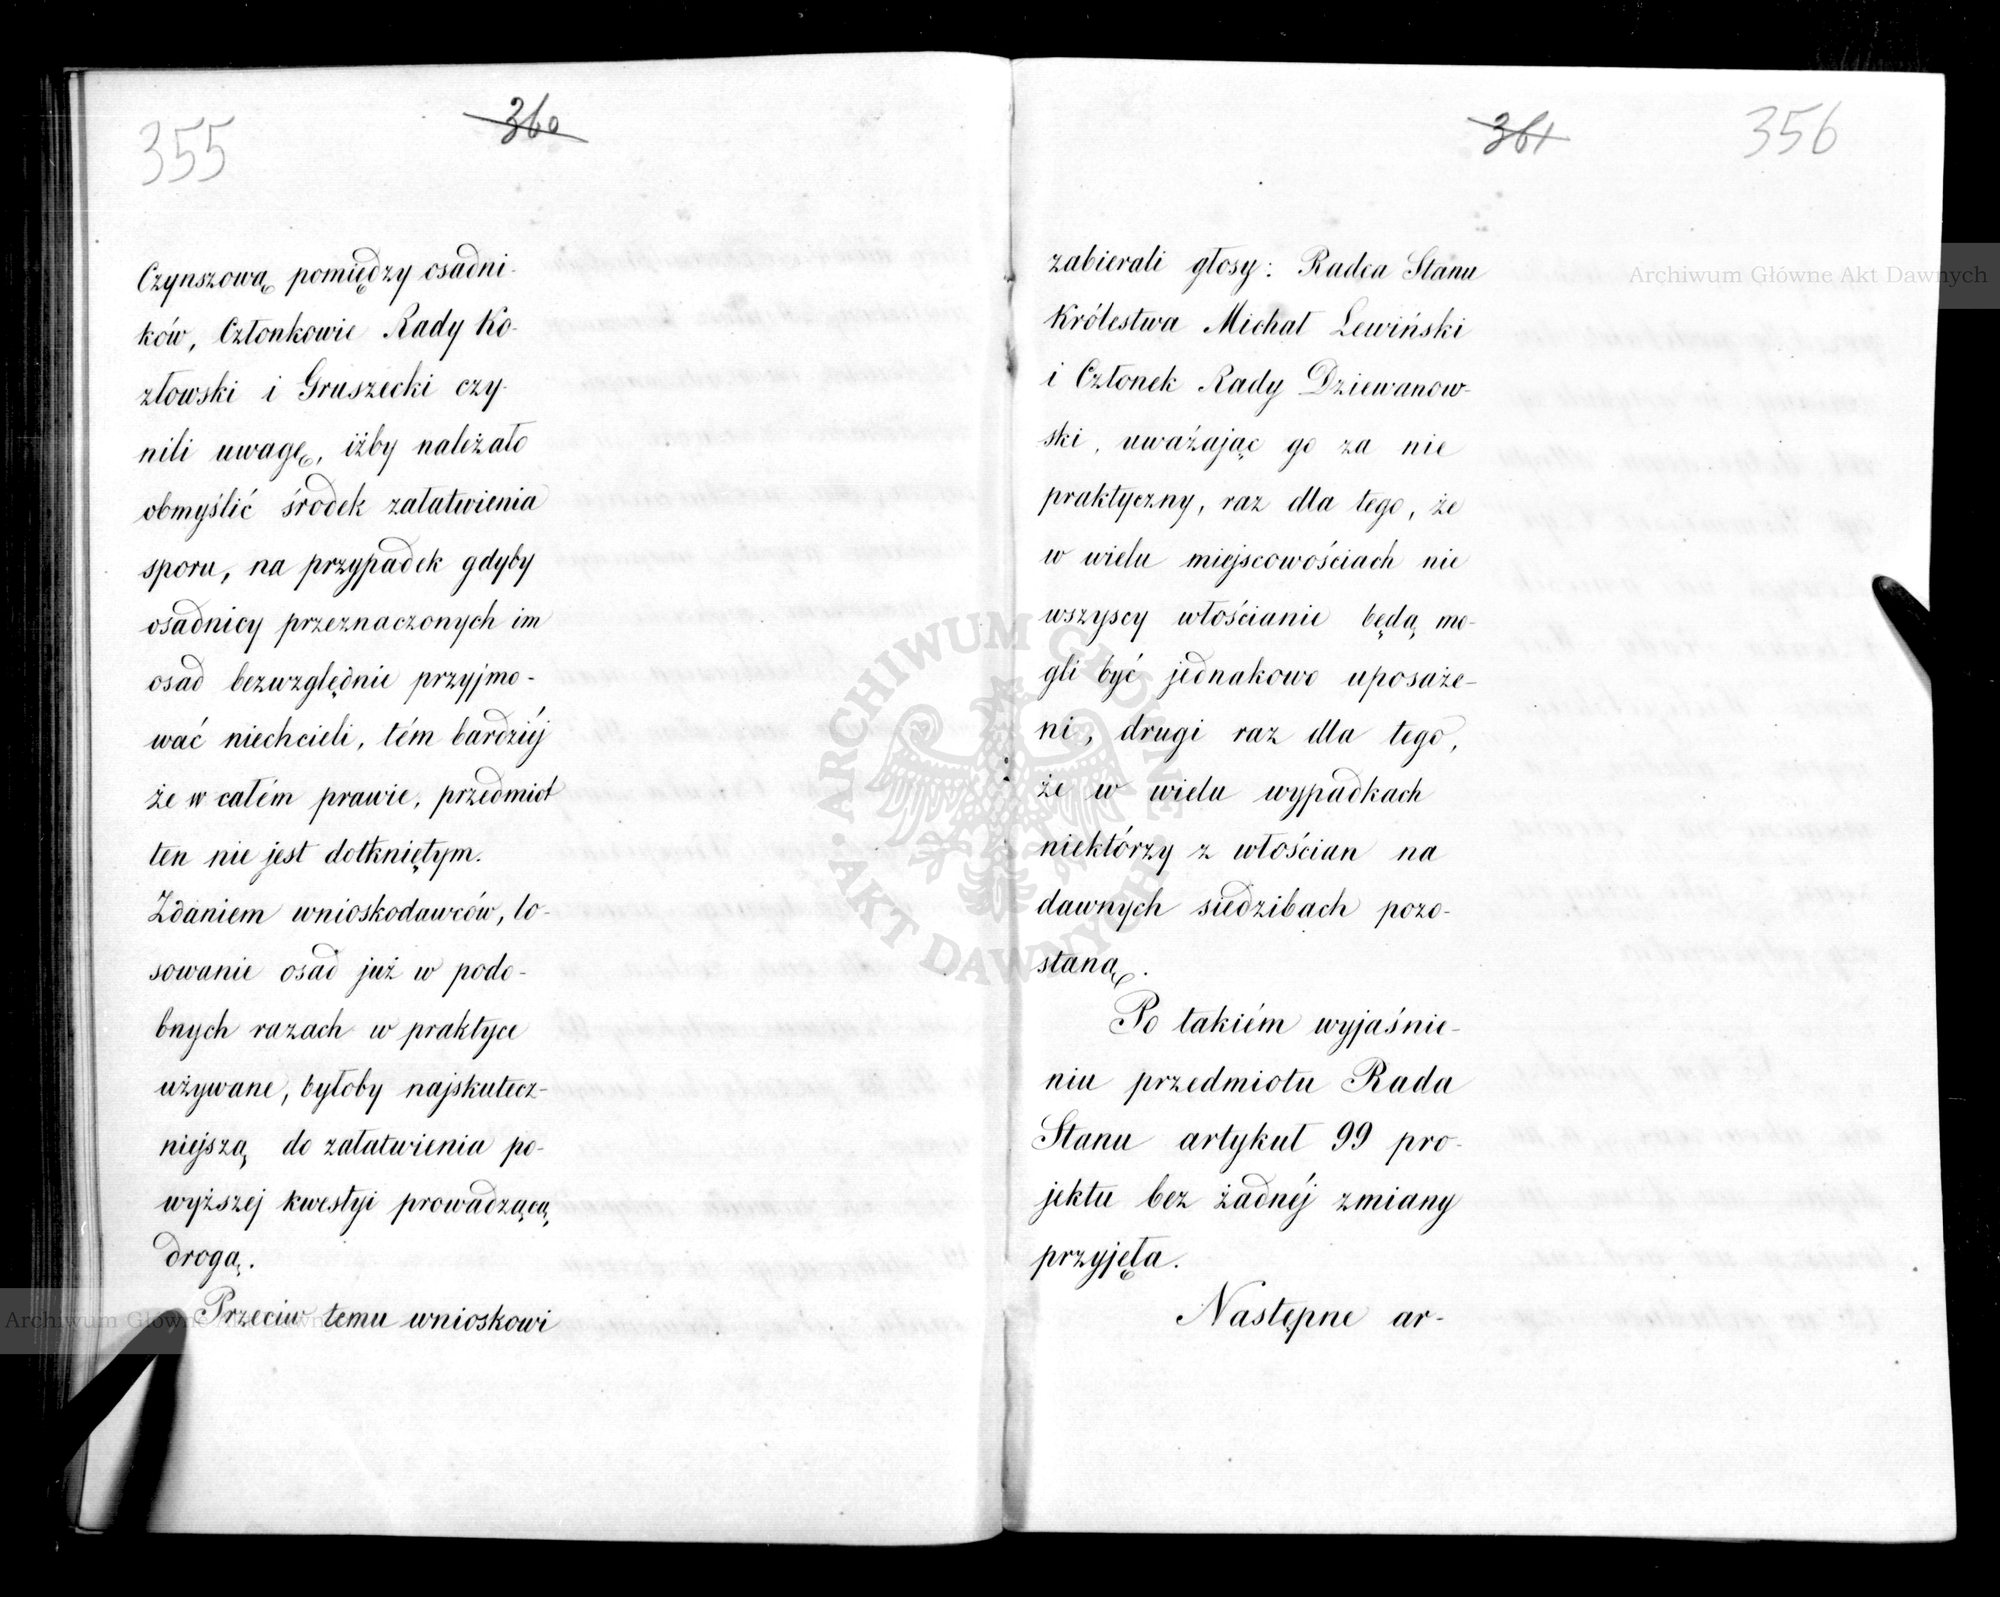 355
360
Czynszową pomiędzy osadni-
ków, Członkowie Rady Ko-
złowski i Gruszecki czy-
nili uwagę, iżby należało
obmyślić środek załatwienia
sporu, na przypadek gdyby
osadnicy przeznaczonych im
osad bezwzględnie przyjmo-
wać niechcieli, tém bardziéj
że w całém prawie, przedmiot
ten nie jest dotkniętym.
Zdaniem wnioskodawców, lo-
sowanie osad już w podo-
bnych razach w praktyce
używane, byłoby najskutecz-
niejszą do załatwienia po-
wyższej kwestyi prowadzącą
drogą.
Przeciw temu wnioskowi
361
356
zabierali głosy: Radca Stanu
Królestwa Michał Lewiński
i Członek Rady Dziewanow-
ski, uważając go za nie
praktyczny, raz dla tego, że
w wielu miejscowościach nie
wszyscy włościanie będą mo-
gli być jednakowo uposaże-
ni, drugi raz dla tego,
że w wielu wypadkach
niektórzy z włościan na
dawnych siedzibach pozo-
staną.
Po takiém wyjaśnie-
niu przedmiotu Rada
Stanu artykuł 99 pro-
jektu bez żadnéj zmiany
przyjęła.
Następne ar-
Archiwum Główne Akt Dawnych
Archiwum Główne Akt Dawnych
ARCHIWUM GŁÓWNE AKT DAWNYCH